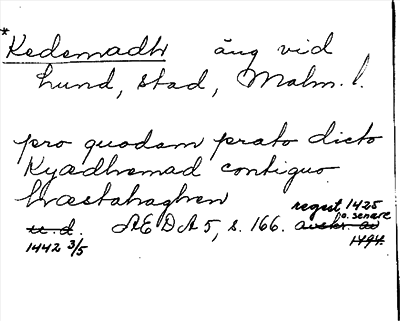 *Kedemadh äng vid
Lund, stad, Malm. l.
pro quodam prato dicto
Kyædhemad contiguo
hræstahaghen
regest 1425
o. senare
u. d. AEDA 5, s. 166. avskr. av
1442 3/5 1494